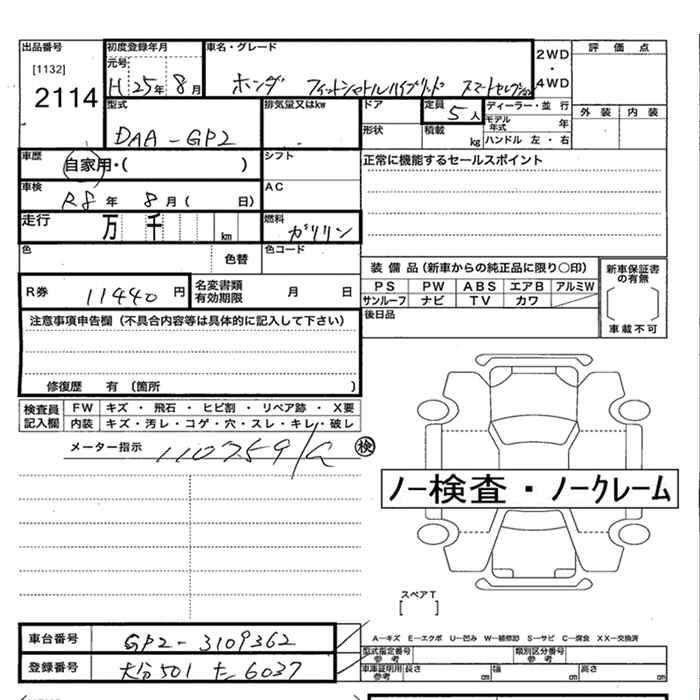 出品番号 初度登録年月 車名・グレード 評価点
[1132] 元号 2WD
2114 H 25年 8月 ホンダ フィットシャトルハイブリッド スマートセレクション ・ 4WD
型式 排気量又はkw ドア 定員 5人 ディーラー・並行 外装 内装
DAA-GP2 形状 積載 kg モデル年式 年
ハンドル 左・右
車歴 自家用・( ) シフト 正常に機能するセールスポイント
車検 R8年 8月( 日) AC
走行 万 千 km 燃料 ガソリン
色 色替 色コード
装備品(新車からの純正品に限り○印) 新車保証書の有無
R券 11440円 名変書類有効期限 月 日 PS PW ABS エアB アルミW
サンルーフ ナビ TV カワ
後日品 車載不可
注意事項申告欄(不具合内容等は具体的に記入して下さい)
修復歴 有(箇所 )
検査員記入欄 FW キズ・飛石・ヒビ割・リペア跡・X要
内装 キズ・汚レ・コゲ・穴・スレ・キレ・破レ
メーター指示 110759 検
ノー検査・ノークレーム
スペアT
[ ]
車台番号 GP2-3109362 A―キズ E―エクボ U―凹み W―補修跡 S―サビ C―腐食 XX―交換済
型式指定番号参考 類別区分番号参考
登録番号 大分501 た 6037 車庫証明用参考 長さ cm 幅 cm 高さ cm